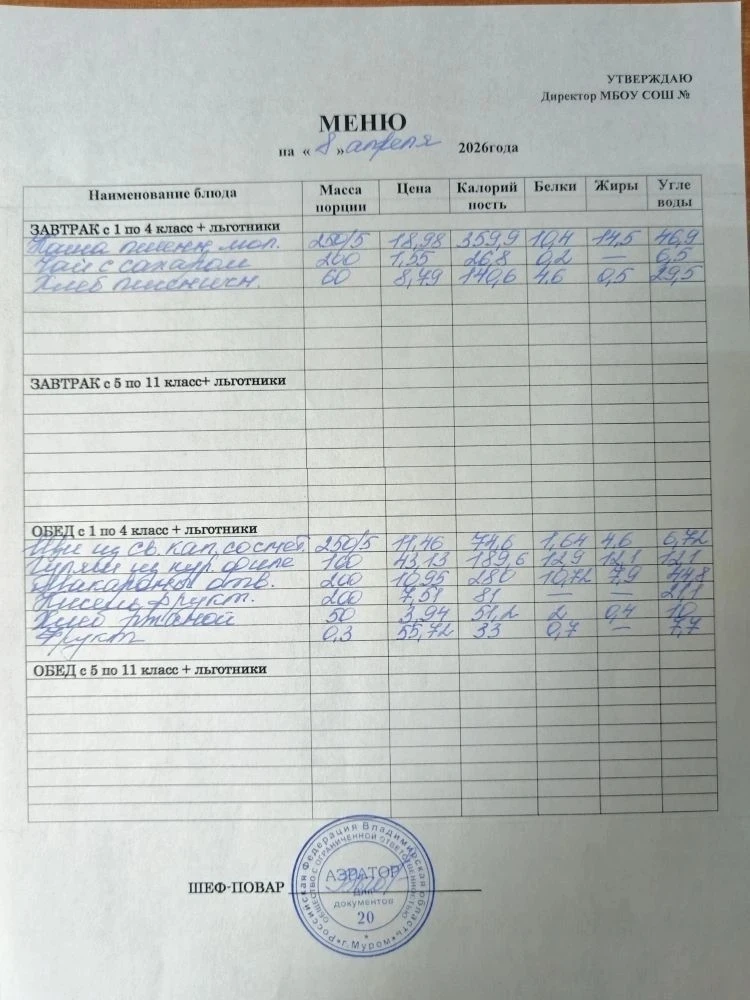 УТВЕРЖДАЮ
Директор МБОУ СОШ №
МЕНЮ
на « 8 » апреля 2026года
Наименование блюда Масса порции Цена Калорий ность Белки Жиры Угле воды
ЗАВТРАК с 1 по 4 класс + льготники
Каша пшенн. мол. 250/5 18,98 359,9 10,4 14,5 46,9
Чай с сахаром 200 1,55 26,8 0,2 — 6,5
Хлеб пшеничн. 60 8,49 140,6 4,6 0,5 29,5
ЗАВТРАК с 5 по 11 класс+ льготники
ОБЕД с 1 по 4 класс + льготники
Щи из св. кап. со смет. 250/5 11,46 74,6 1,64 4,6 6,72
Гуляш из кур. филе 100 43,13 189,6 12,9 12,1 12,1
Макароны отв. 200 10,95 280 10,72 7,9 44,8
Кисель фрукт. 200 7,51 81 — — 21,1
Хлеб ржаной 50 3,94 51,2 2 0,4 10
Фрукт 0,3 55,72 33 0,7 — 7,7
ОБЕД с 5 по 11 класс + льготники
ШЕФ-ПОВАР
Российская Федерация Владимирская область
г. Муром
ОБЩЕСТВО С ОГРАНИЧЕННОЙ ОТВЕТСТВЕННОСТЬЮ
АЭРАТОР
для
документов
20